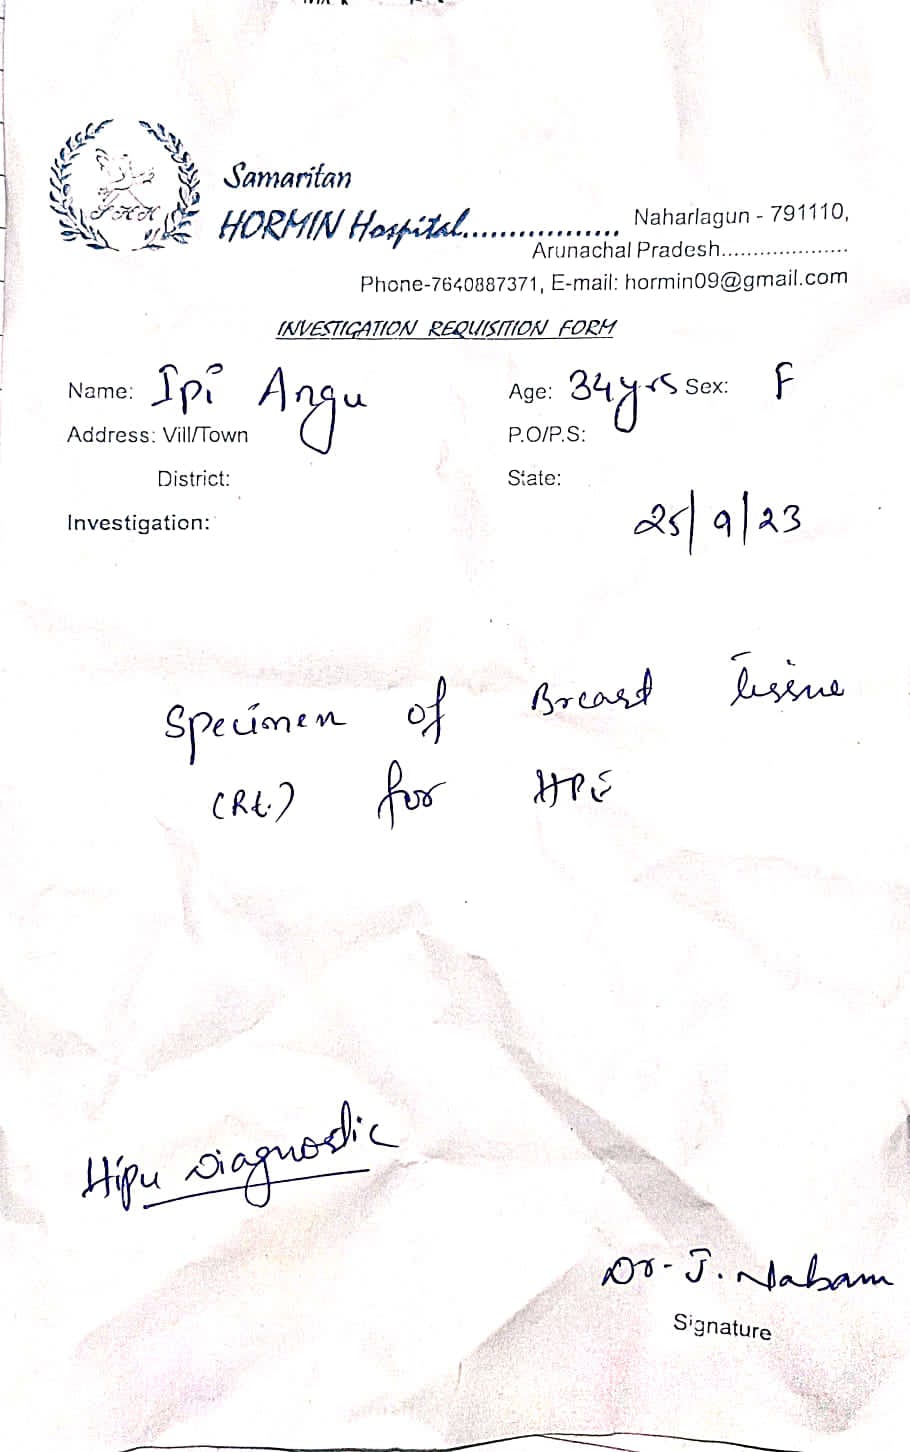 Samaritan
HORMIN Hospital.................. Naharlagun - 791110,
Arunachal Pradesh....................
Phone-7640887371, E-mail: hormin09@gmail.com
INVESTIGATION REQUISITION FORM
Name: Ipi Angu Age: 34yrs Sex: F
Address: Vill/Town P.O/P.S:
District: State:
Investigation: 25/9/23
Specimen of Breast Tissue
(Rt.) for HPE
Hipu Diagnostic
Dr- J. Nabam
Signature